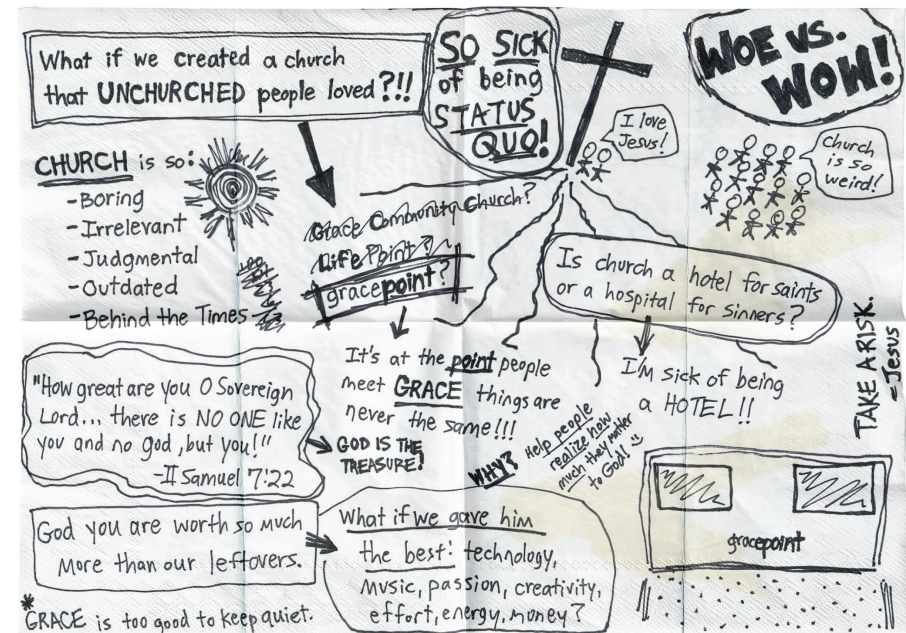 What if we created a church
that UNCHURCHED people loved?!!
SO SICK
of being
STATUS
QUO!
I love
Jesus!
WOE vs.
WOW!
Church
is so
weird!
CHURCH is so:
-Boring
-Irrelevant
-Judgmental
-Outdated
-Behind the Times
Grace Community Church?
Life Point?
gracepoint?
Is church a hotel for saints
or a hospital for sinners?
I'M sick of being
a HOTEL!!
TAKE A RISK.
-Jesus
It's at the point people
meet GRACE things are
never the same!!!
"How great are you O Sovereign
Lord... there is NO ONE like
you and no god, but you!"
-II Samuel 7:22
GOD IS THE
TREASURE!
WHY?
Help people
realize how
much they matter
to God!
God you are worth so much
more than our leftovers.
What if we gave him
the best: technology,
music, passion, creativity,
effort, energy, money?
gracepoint
* GRACE is too good to keep quiet.